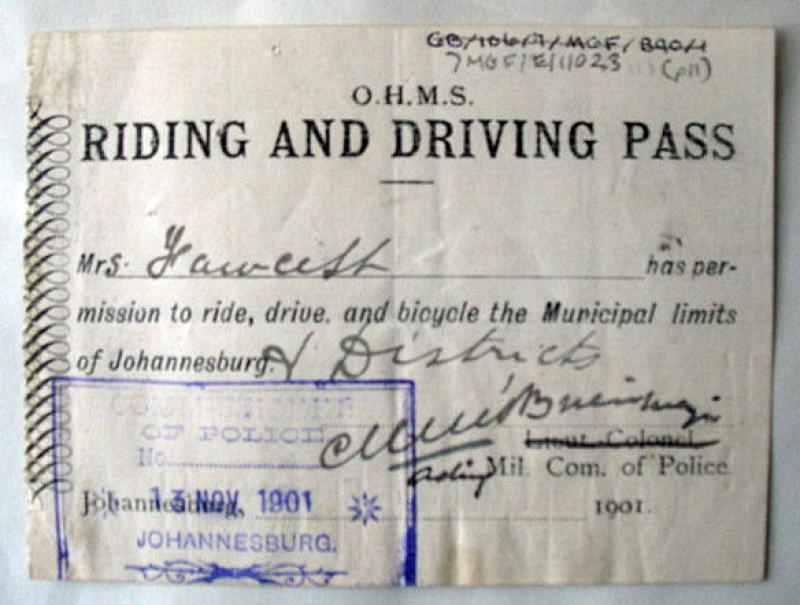 GB/106/7/MGF/B90/1
7MGF/E/11023 (pII)
O.H.M.S.
RIDING AND DRIVING PASS
Mrs. Fawcett has per-
mission to ride, drive. and bicycle the Municipal limits
of Johannesburg. & Districts
Lieut.-Colonel
acting Mil. Com. of Police
Johannesburg, 1901.
COMMISSIONER
OF POLICE
No.
13 NOV. 1901
JOHANNESBURG.